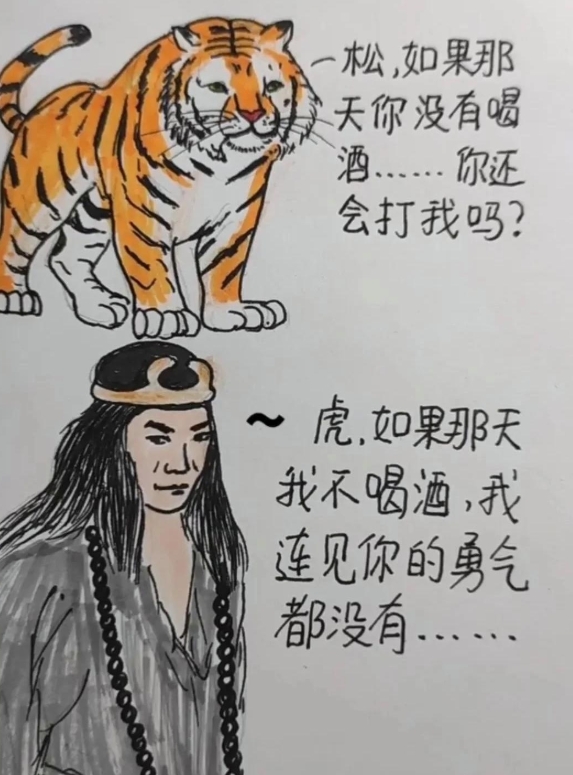 松,如果那
天你没有喝
酒……你还
会打我吗?
~ 虎,如果那天
我不喝酒,我
连见你的勇气
都没有……